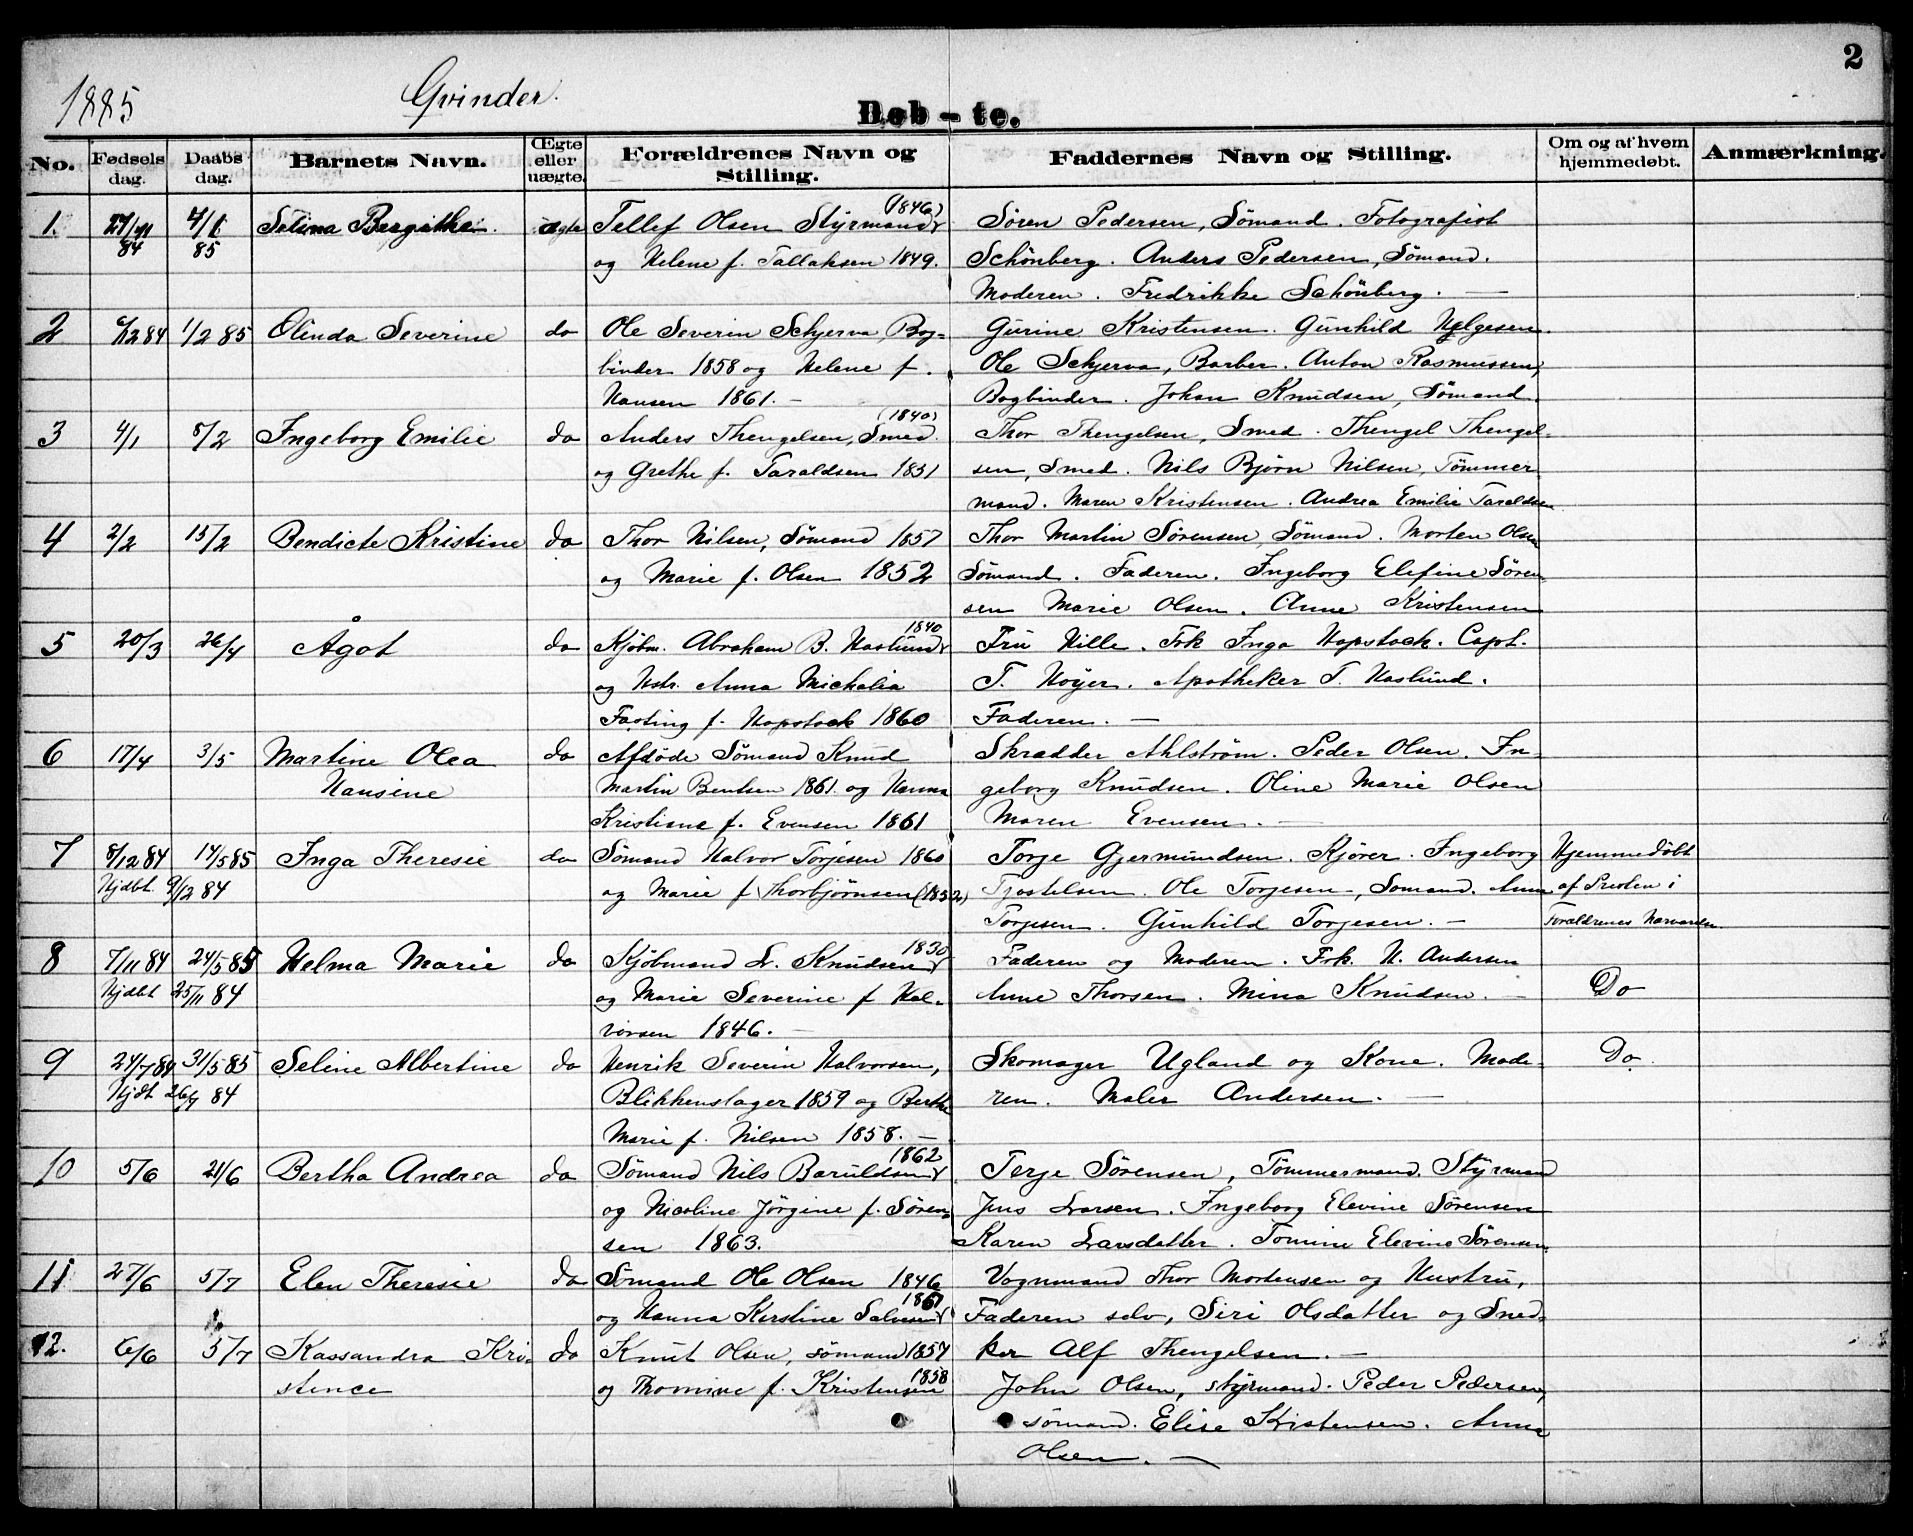 2
1885
Qvinder.
Døb - te.
No. Fødsels dag. Daabs dag. Barnets Navn. Ægte eller uægte. Forældrenes Navn og Stilling. Faddernes Navn og Stilling. Om og af hvem hjemmedøbt. Anmærkning.
1 27/11 84 4/1 85 Selina Bergithe. ægte Tellef Olsen Styrmand (1846) Søren Pedersen, Sømand. Fotografist
og Helene f. Tallaksen 1849. Schönberg. Anders Pedersen, Sømand.
Moderen. Fredrikke Schönberg. —
2 6/12 84 1/2 85 Olinda Severine do Ole Severin Schjerva, Bog- Gurine Kristensen. Gunhild Helgesen.
binder 1858 og Helene f. Ole Schjerva, Barber. Anton Rasmussen,
Hansen 1861. — Bogbinder. Johan Knudsen, Sømand.
3 4/1 8/2 Ingeborg Emilie do Anders Thengelsen, Smed. (1840) Thor Thengelsen, Smed. Thengel Thengel-
og Grethe f. Taraldsen 1851 sen, Smed. Nils Bjørn Nilsen, Tømmer
mand. Maren Kristensen. Andrea Emilie Taraldsen
4 2/2 15/2 Bendicte Kristine do Thor Nilsen, Sømand 1857 Thor Martin Sørensen, Sømand. Morten Olsen
og Marie f. Olsen 1852 Sømand. Faderen. Ingeborg Elefine Søren
sen Marie Olsen. Anne Kristensen
5 20/3 26/4 Ågot do Kjøbm. Abraham B. Haslund 1840 Fru Hille. Frk Inga Hopstock. Capt.
og Hstr. Anna Michalia T. Høyer. Apotheker T. Haslund.
Fasting f. Hopstock 1860 Faderen. —
6 17/4 3/5 Martine Olea do Afdøde Sømand Knud Skrædder Ahlstrøm. Peder Olsen. In-
Hansine Martin Bentsen 1861 og Hanna geborg Knudsen. Oline Marie Olsen
Kristiane f. Evensen 1861 Maren Evensen. —
7 8/12 84 17/5 85 Inga Theresie do Sømand Halvor Torjesen 1860 Torje Gjermundsen. Kjører. Ingeborg Hjemmedøbt
Hjdbt 9/12 84 og Marie f Thorbjørnsen (1852) Tjostelsen. Ole Torjesen, Sømand. Anne af Presten i
Torjesen. Gunhild Torjesen. — Forældrenes Nærværelse
8 7/11 84 24/5 85 Helma Marie do Kjøbmand L. Knudsen 1830 Faderen og Moderen. Frk. H. Andersen
Hjdbt 25/11 84 og Marie Severine f Hal- Anne Thorsen. Mina Knudsen. — Do
vorsen 1846. —
9 24/7 84 31/5 85 Seline Albertine do Henrik Severin Halvorsen, Skomager Ugland og Kone. Mode- Do.
Hjdt 26/7 84 Blikkenslager 1859 og Berthe ren. Maler Andersen. —
Marie f. Nilsen 1858. —
10 5/6 21/6 Bertha Andrea do Sømand Nils Baruldsen 1862 Terje Sørensen, Tømmermand. Styrmand
og Nicoline Jørgine f. Søren- Jens Larsen. Ingeborg Elevine Sørensen
sen 1863. Karen Larsdatter. Tomine Elevine Sørensen
11 27/6 5/7 Elen Theresie do Sømand Ole Olsen 1846 Vognmand Thor Mortensen og Hustru,
og Hanna Kerstine Salvesen 1861 Faderen selv, Siri Olsdatter og Sned-
12. 6/6 5/7 Kassandra Kri- do Knut Olsen, sømand 1857 ker Alf Thengelsen. —
stence og Thomine f. Kristensen 1858 John Olsen, styrmand. Peder Pedersen,
sømand. Elise Kristensen. Anne
Olsen. —